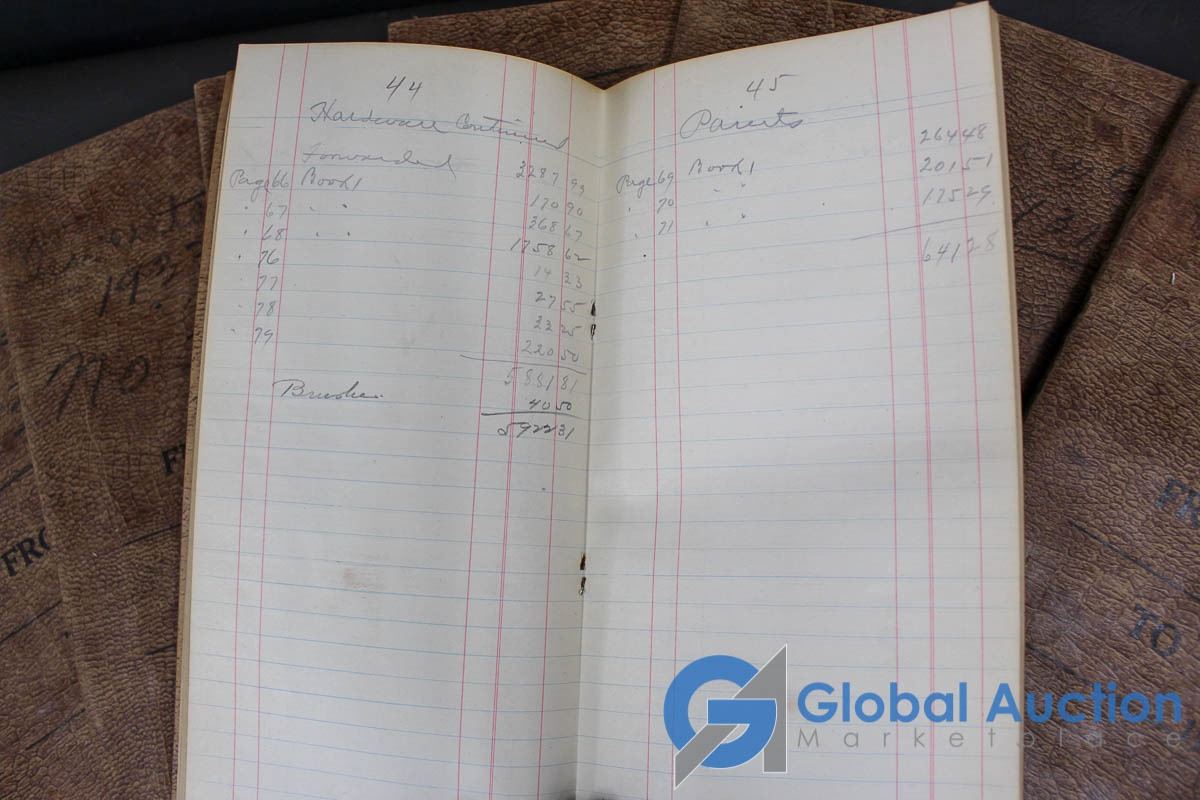 44
Hardware Continued
Forwarded 3287 99
Page 66 Book 1 170 90
" 67 " " 368 67
" 68 " " 1758 62
" 76 14 33
" 77 27 55
" 78 33 25
" 79 220 50
5881 81
Brushes 40 50
5922 31
45
Paints
Page 69 Book 1 264 48
" 70 " " 201 51
" 71 " " 175 29
641 28
No
TO
Global Auction
Marketplace